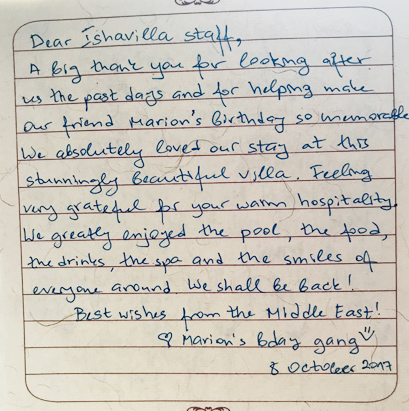 Dear Ishavilla staff,
A Big thank you for looking after
us the past days and for helping make
our friend Marion's Birthday so memorable
We absolutely loved our stay at this
stunningly Beautiful villa. Feeling
very grateful for your warm hospitality.
We greatly enjoyed the pool, the food,
the drinks, the spa and the smiles of
everyone around. We shall Be Back!
Best wishes from the Middle East!
♡ Marion's Bday gang
8 October 2017